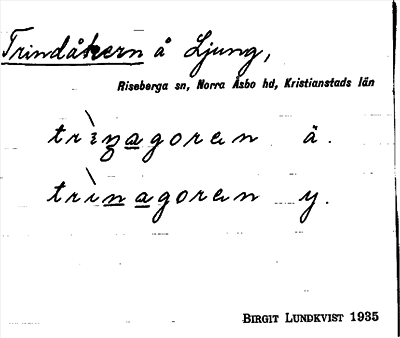 Trindåkern å Ljung,
Riseberga sn, Norra Åsbo hd, Kristianstads län
trìnagoren ä.
trìnagoren y.
BIRGIT LUNDKVIST 1935